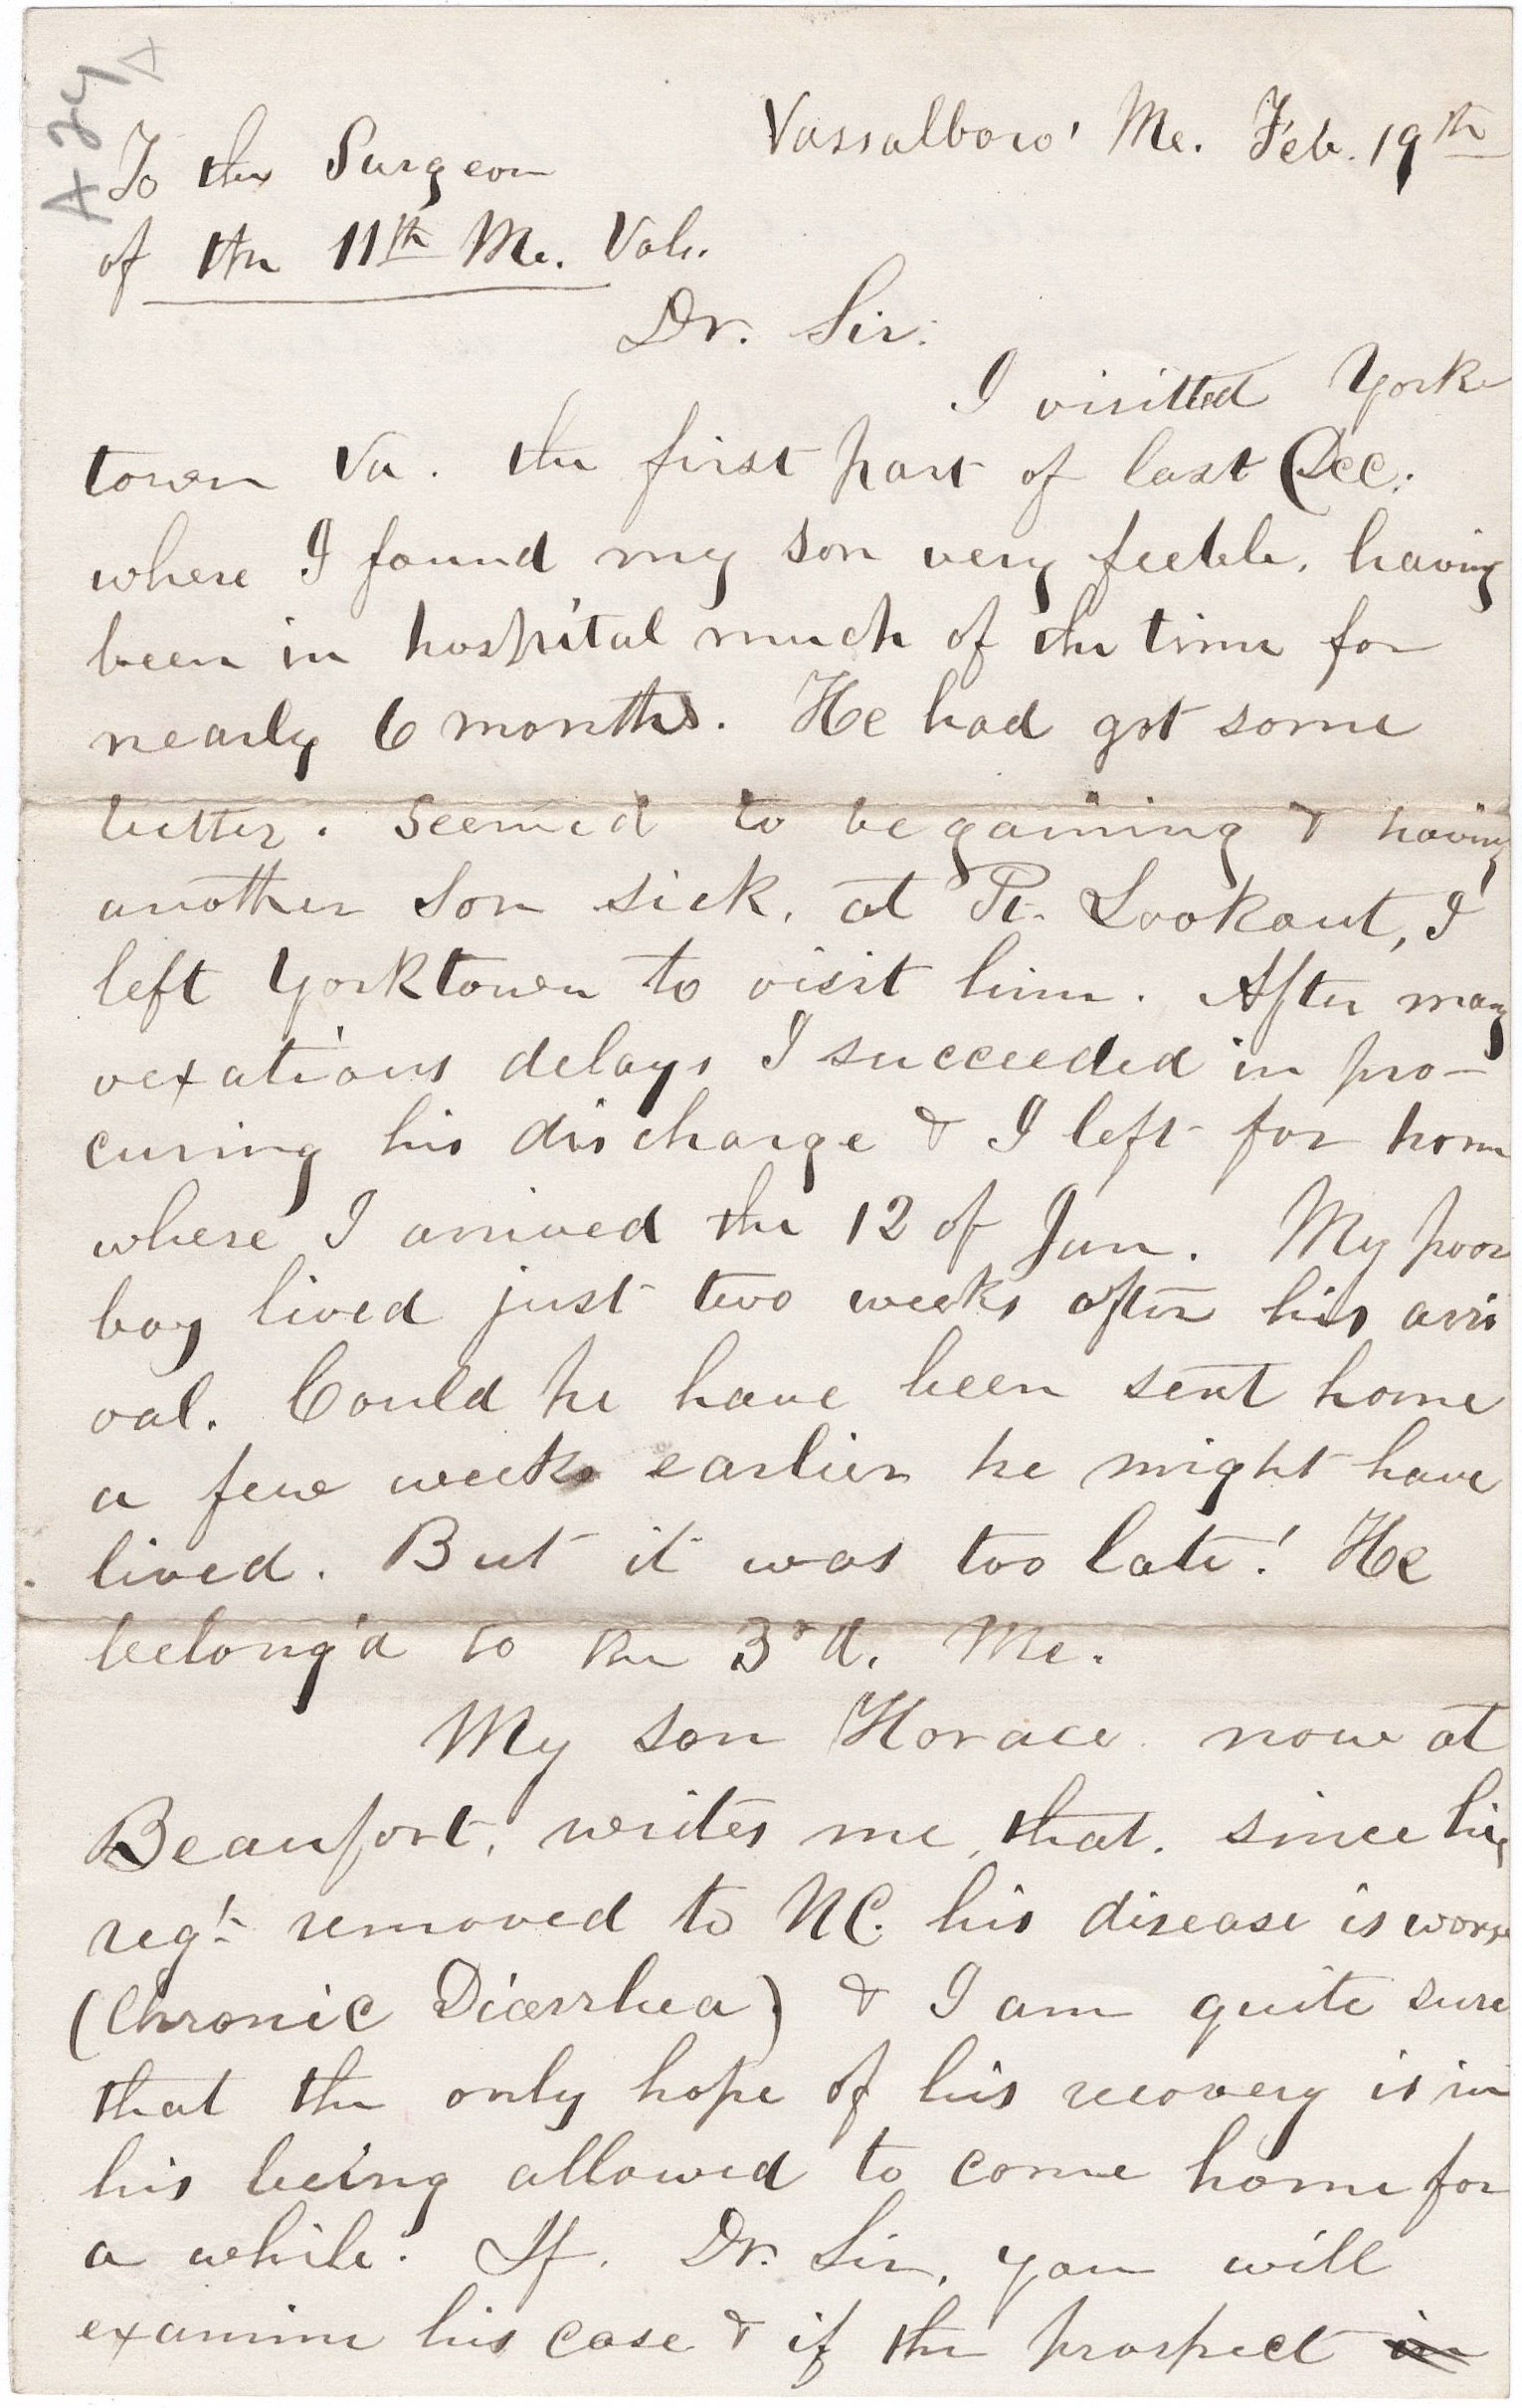 A 24 x
Vassalboro' Me. Feb. 19th
To the Surgeon
of the 11th Me. Vols.
Dr. Sir:
I visitted York
town Va. the first part of last Dec.
where I found my son very feeble, having
been in hospital much of the time for
nearly 6 months. He had got some
better. Seemed to be gaining & having
another son sick, at Pt. Lookout, I
left Yorktown to visit him. After many
vexatious delays I succeeded in pro-
curing his discharge & I left for home
where I arrived the 12 of Jan. My poor
boy lived just two weeks after his arri
val. Could he have been sent home
a few weeks earlier he might have
lived. But it was too late! He
belong'd to the 3rd. Me.
My son Horace now at
Beaufort, writes me, that, since his
reg't removed to NC. his disease is worse
(Chronic Diarrhea) & I am quite sure
that the only hope of his recovery is in
his being allowed to come home for
a while. If, Dr. Sir, you will
examine his case & if the prospect in